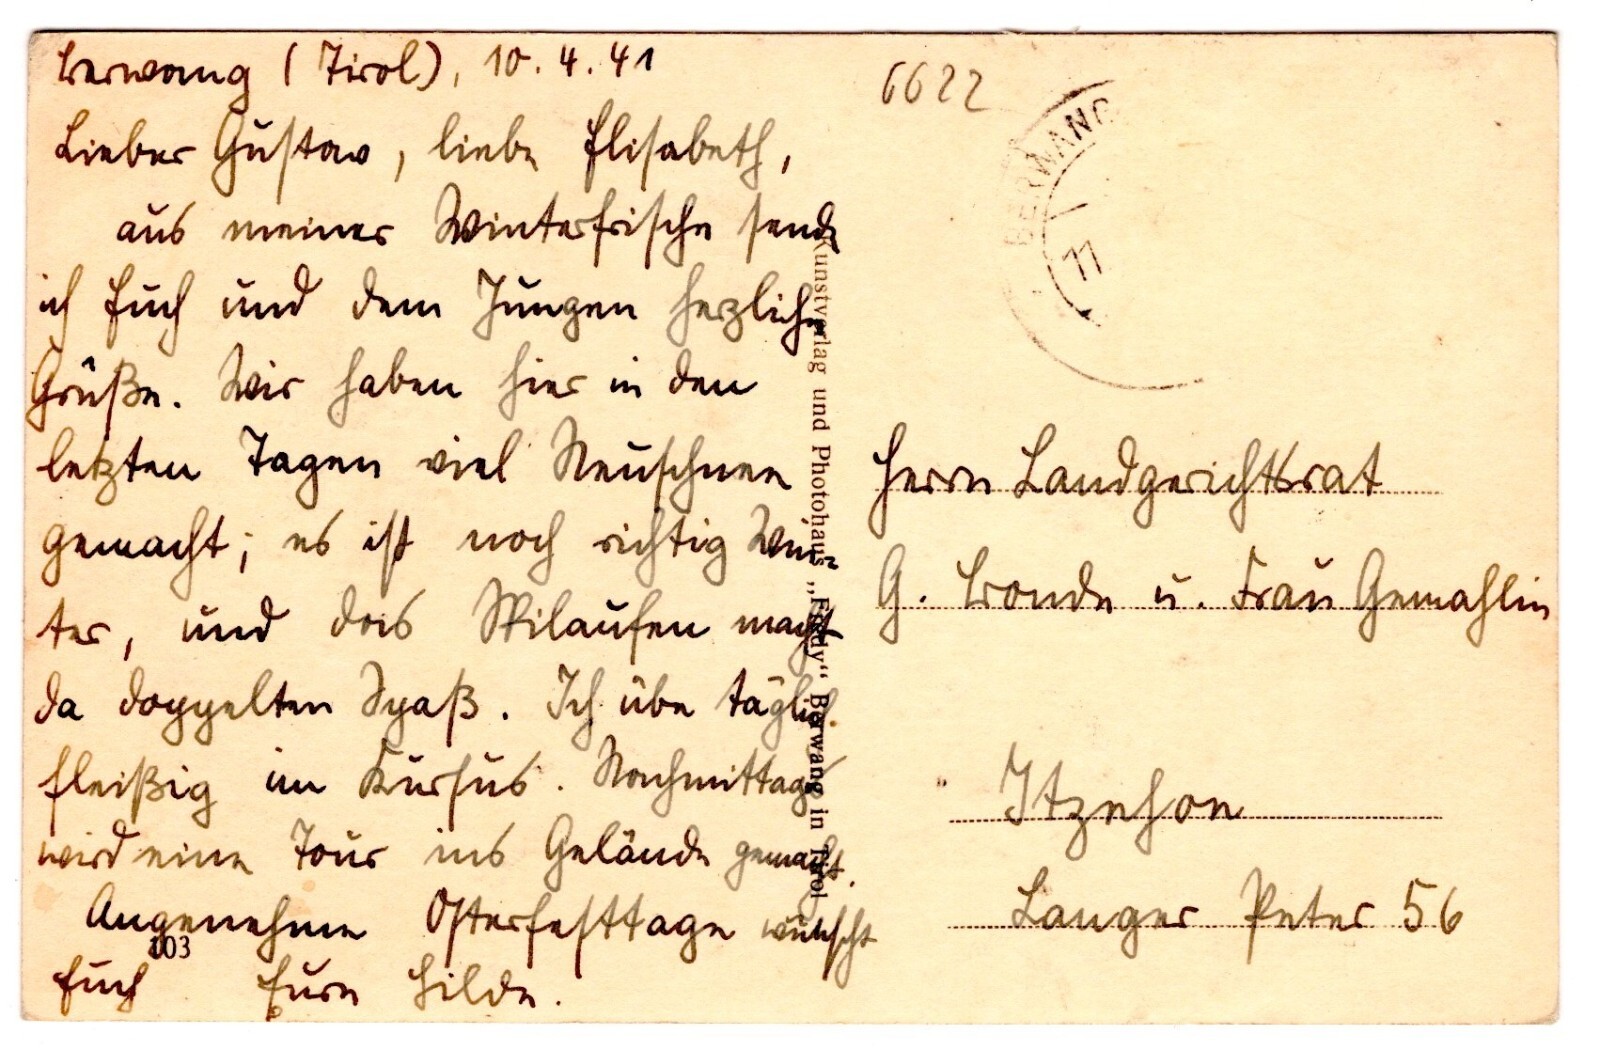 Berwang (Tirol), 10.4.41
Lieber Gustav, liebe Elisabeth,
aus meiner Winterfrische sende
ich Euch und dem Jungen herzliche
Grüße. Wir haben hier in den
letzten Tagen viel Neuschnee
gemacht; es ist noch richtig Win-
ter, und das Skilaufen macht
da doppelten Spaß. Ich übe täglich
fleißig im Kursus. Nachmittags
wird eine Tour ins Gelände gemacht.
Angenehme Osterfesttage wünscht
Euch Eure Hilde.
103
Kunstverlag und Photohaus „Fredy“ Berwang in Tirol
6622
BERWANG
11
Herrn Landgerichtsrat
G. Bonde u. Frau Gemahlin
Itzehoe
Langer Peter 56